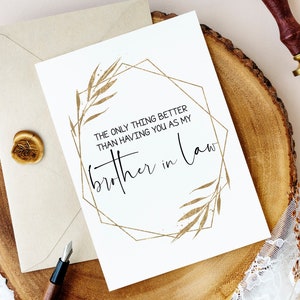 THE ONLY THING BETTER
THAN HAVING YOU AS MY
brother in law